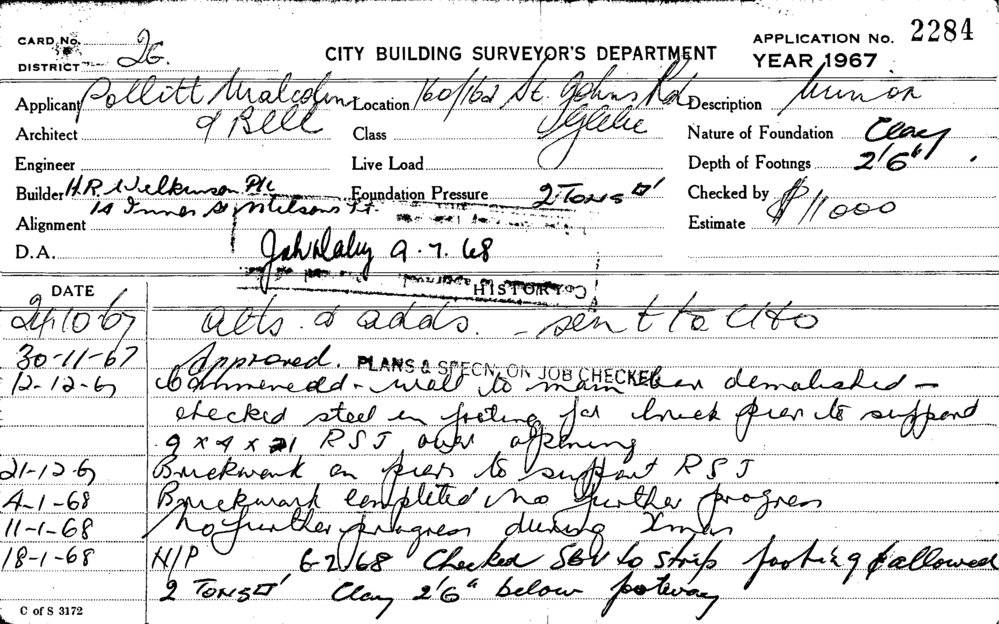 CARD No.
DISTRICT 26.
CITY BUILDING SURVEYOR'S DEPARTMENT
APPLICATION No. 2284
YEAR 1967
Applicant Pollitt Malcolm & Bell
Location 160/162 St. Johns Rd Glebe
Description Minor
Architect
Class
Nature of Foundation Clay
Engineer
Live Load
Depth of Footings 2'6"
Builder H.R. Wilkinson P/L
14 Inner St Milsons Pt.
Foundation Pressure 2 Tons □'
Checked by
Alignment
Estimate $11000
D.A.
9.7.68
HISTORY
DATE
24/10/67 alts. & adds. - sent to
30-11-67 Approved. PLANS & SPECN. ON JOB CHECKED
12-12-67 Commenced - wall to main bar demolished -
checked steel in footing for brick pier to support
9 x 4 x 21 RSJ over opening
21-12-67 Brickwork on pier to support RSJ
4-1-68 Brickwork completed no further progress
11-1-68 No further progress during Xmas
18-1-68 N/P 6-2-68 Checked to strip footing & allowed
2 Tons □' Clay 2'6" below footway
C of S 3172